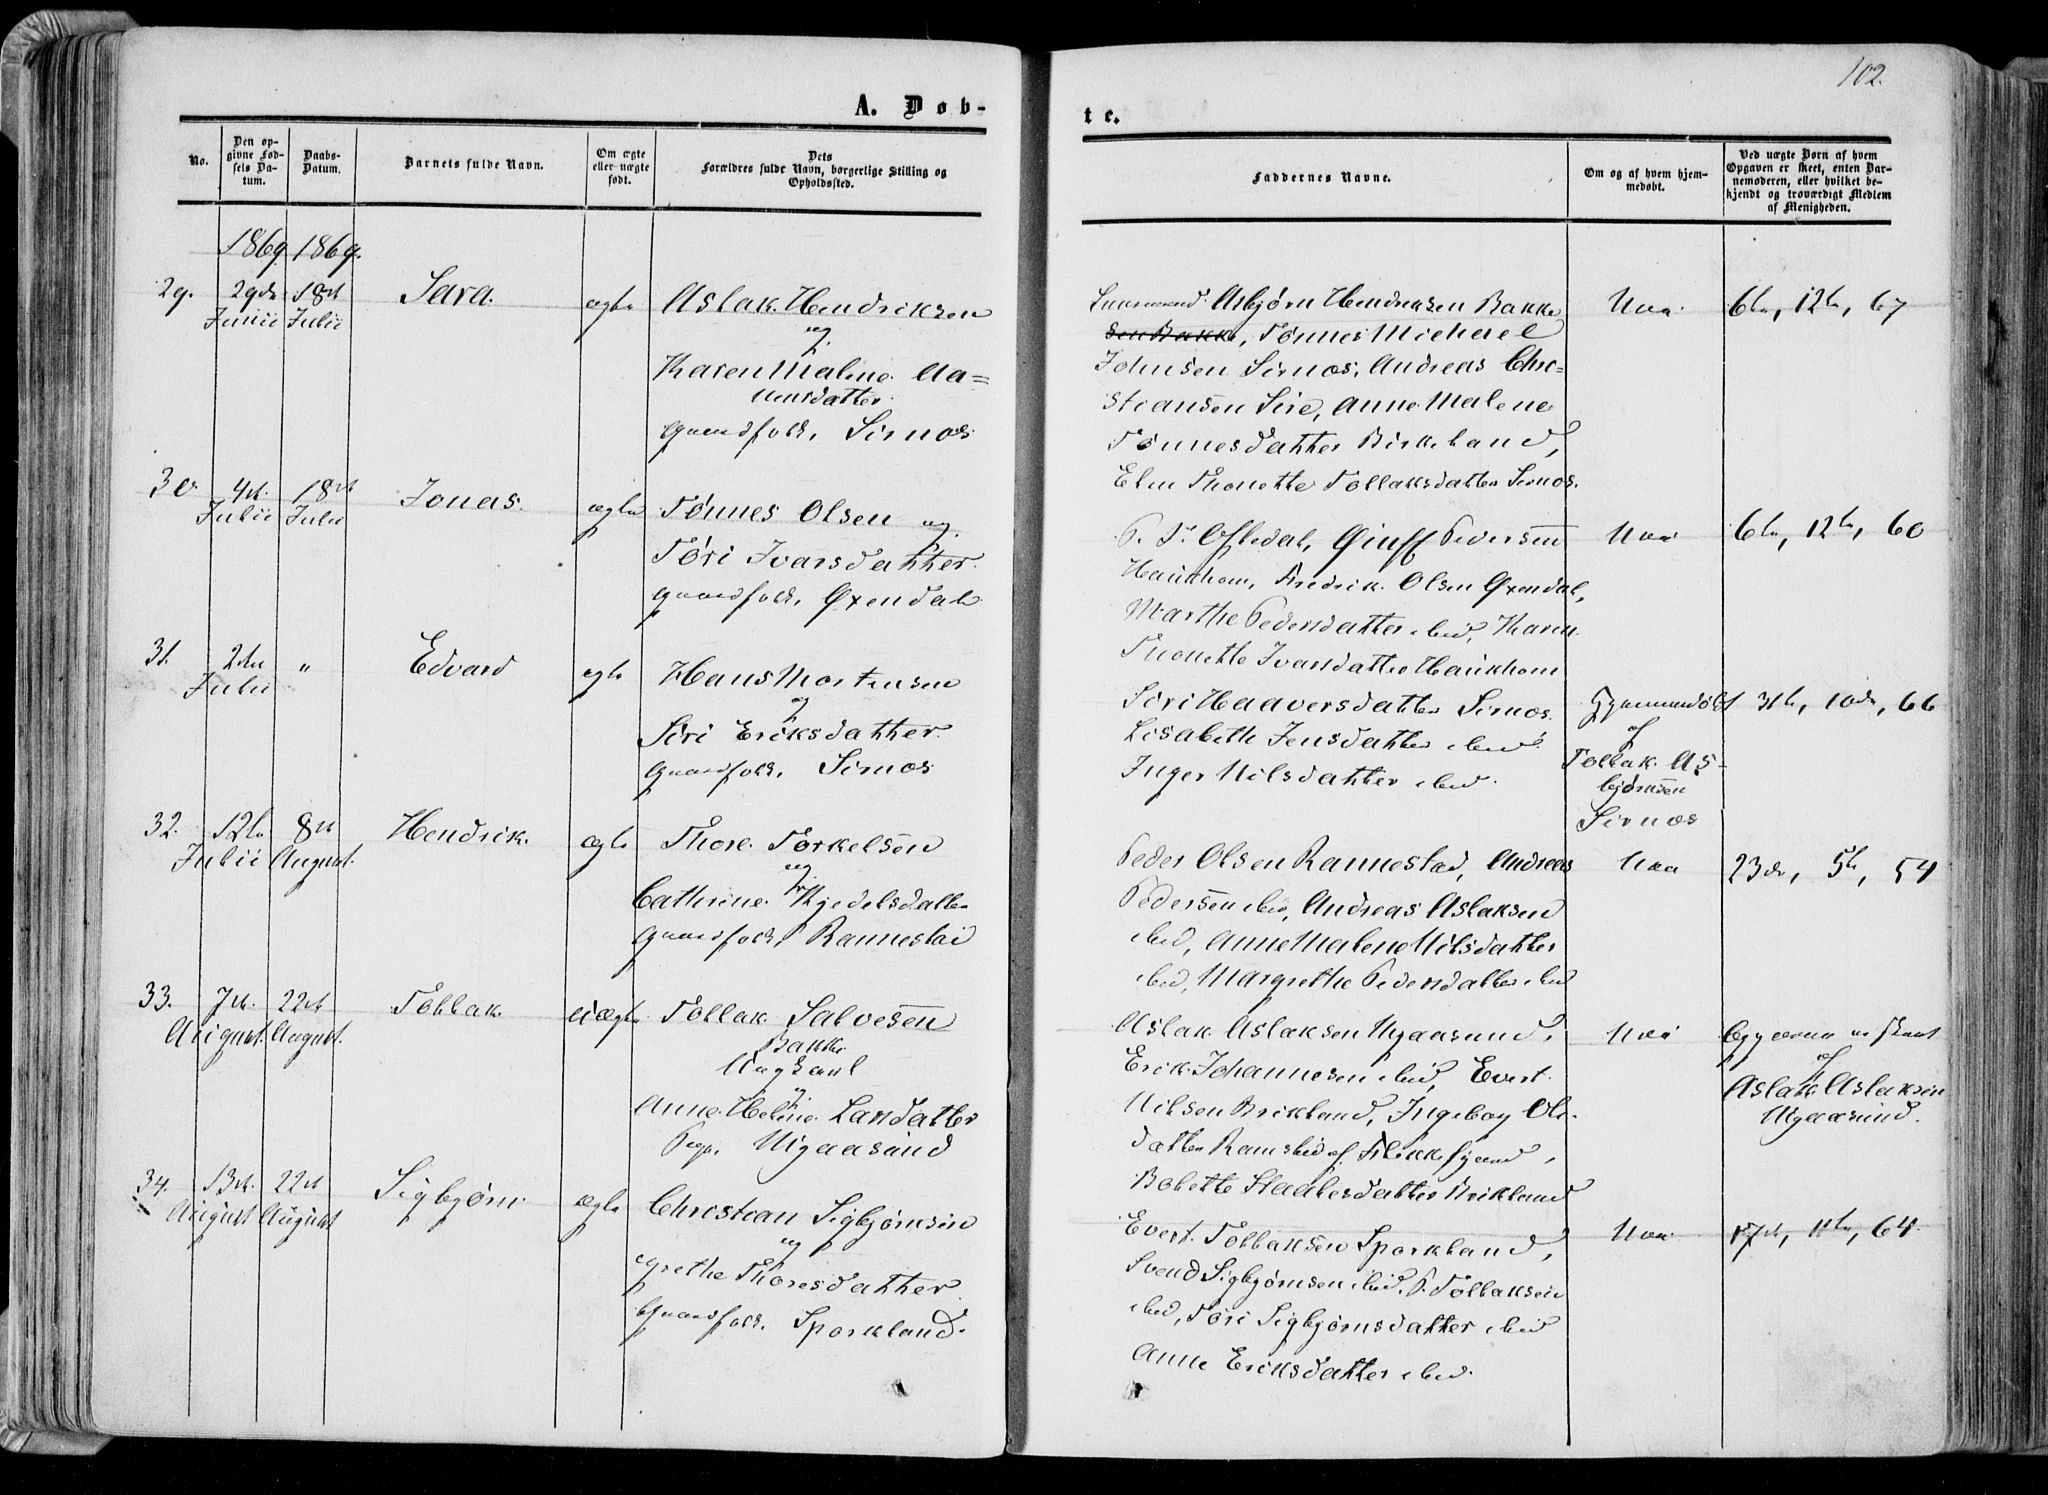 102.
A. Døb-
te.
No.
Den op-
givne Fød-
sels Da-
tum.
Daabs-
Datum.
Barnets fulde Navn.
Om ægte
eller uægte
født.
Dets
Forældres fulde Navn, borgerlige Stilling og
Opholdssted.
Faddernes Navne.
Om og af hvem hjem-
medøbt.
Ved uægte Børn af hvem
Opgaven er skeet, enten Bar-
nemoderen, eller hvilket be-
kjendt og troværdigt Medlem
af Menigheden.
1869. 1869.
29.
29de
Junii
18de
Julii
Sara.
ægte
Aslak Hendriksen
og
Karen Malene Aa=
nensdatter
Gaardfolk, Sirnos
Asbjørn Hendriksen Bakke
sen Bakke, Tønnes Michael
Johnsen Sirnos, Andreas Chri=
stiansen Sire, Anne Malene
Tønnesdatter Birkeland,
Elen Thonette Tollaksdatter Sirnos.
Naa
6te, 12te, 67
30
4de
Julii
18de
Julii
Jonas.
ægte
Tønnes Olsen og
Tøri Ivarsdatter
Gaardfolk, Øxendal
P. T. Ofledal, Pedersen
Haukhom, Fredrik Olsen Øxendal,
Marthe Pedersdatter ibid, Karen
Thonette Ivarsdatter Haukhom
6te, 12te, 60
31.
2den
Julii
"
Edvard
ægte
Hans Mortensen
og
Siri Eriksdatter
Gaardfolk, Sirnos
Siri Haaversdatter Sirnos.
Lisabeth Jensdatter ibid
Inger Nilsdatter ibid.
Hjemmedøbt
af
Tollak As-
bjørnsen
Sirnos
31te, 10de, 66
32.
12te
Julii
8de
August.
Hendrik.
ægte
Thore Torkelsen
og
Cathrine Kjedelsdatter
Gaardfolk, Rannestad
Peder Olsen Rannestad, Andreas
Pedersen ibid, Andreas Aslaksen
ibid, Anne Malene Nilsdatter
ibid, Margrethe Pedersdatter ibid
23de, 5te, 54
33.
7de
August.
22de
August.
Tollak
uægte
Tollak Salvesen
Bakke
Ungkarl
og
Anne Helene Larsdatter
Pige, Aagaasund
Aslak Aslaksen
Erik Johannesen ibid, Evert
Nilsen Birkeland, Ingeborg Ols-
datter Ramslid af Flikkefjord,
Bolette Staalesdatter Birkeland
Opgaven er skeet
af
Aslak Aslaksen
34.
13de
August
22de
August
Sigbjørn
ægte
Christian Sigbjørnsen
og
Grethe Thoresdatter
Gaardfolk, Sporkland.
Evert Tollaksen Sporkland,
Svend Sigbjørnsen ibid, P. Tollaksen
ibid, Tøri Sigbjørnsdatter ibid
Anne Eriksdatter ibid.
17de, 11te, 64.